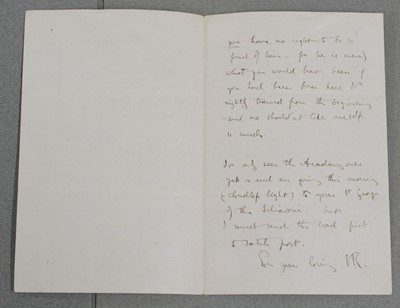 you have no right to be so
proud of him – for he is merely
what you would have been if
you had been born here &
rightly trained from the beginning
and one shouldn't take oneself
so much.
I've only seen the Academy once
yet and am going this morning
(cloudless light) to your St George
of the Schiavoni. but
I must send this word first
to catch post.
Ever your loving JR.